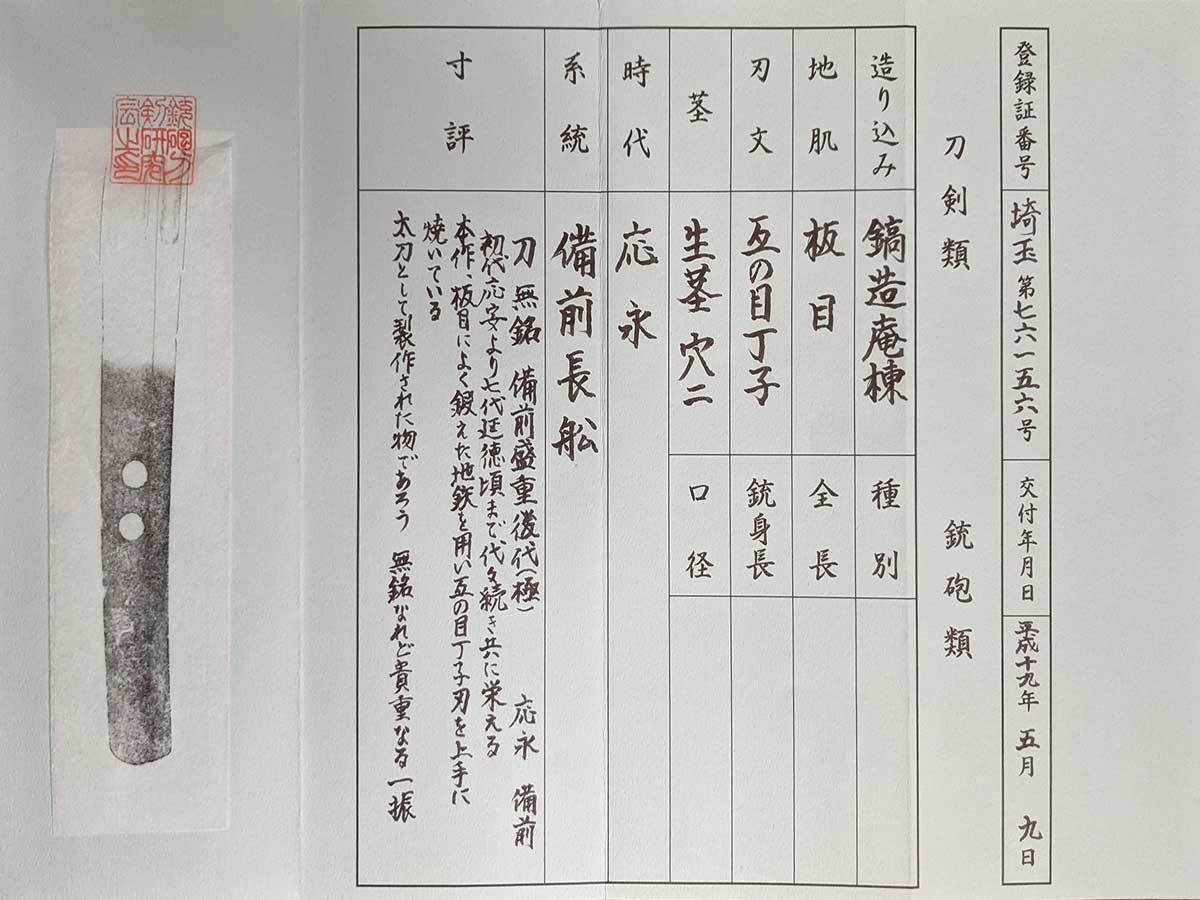 登録証番号 埼玉 第七六一五六号 交付年月日 平成十九年 五月 九日
刀剣類 銃砲類
造り込み 鎬造庵棟 種別
地肌 板目 全長
刃文 互の目丁子 銃身長
茎 生茎 穴二 口径
時代 応永
系統 備前長舩
寸評
刀 無銘 備前盛重後代(極) 応永 備前
初代応安より七代延徳頃まで代々続き共に栄える
本作、板目によく鍛えた地鉄を用い互の目丁子刃を上手に
焼いている
太刀として製作された物であろう 無銘なれど貴重なる一振